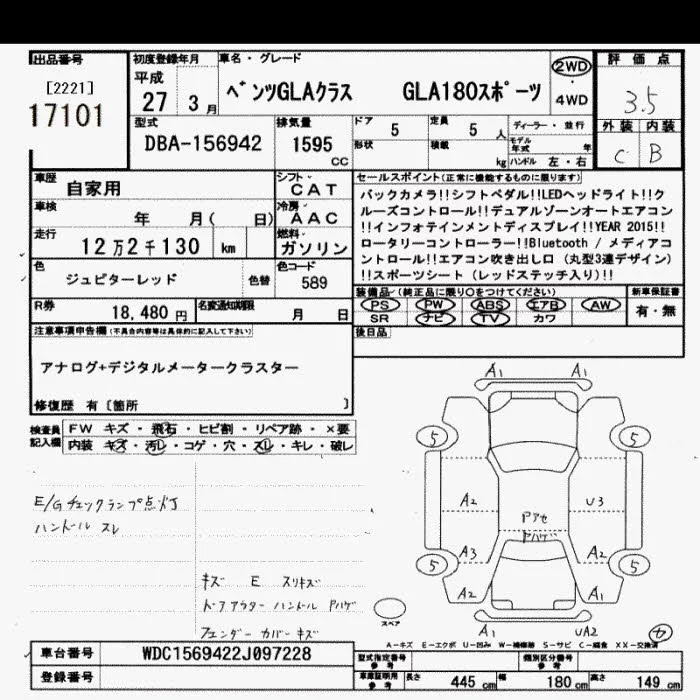 出品番号
[2221]
17101
初度登録年月
平成
27 3月
車名・グレード
ベンツGLAクラス GLA180スポーツ
2WD
4WD
評価点
3.5
外装 内装
C B
型式
DBA-156942
排気量
1595
CC
ドア 5
形状
定員 5 人
積載 kg
ディーラー・並行
モデル年式 年
ハンドル 左・右
車歴
自家用
シフト
CAT
車検
年 月( 日)
冷房
AAC
走行
12万2千130 km
燃料
ガソリン
色
ジュピターレッド
色替
色コード
589
R券
18,480 円
名変通知期限
月 日
セールスポイント(正常に機能するものに限ります)
バックカメラ!!シフトペダル!!LEDヘッドライト!!ク
ルーズコントロール!!デュアルゾーンオートエアコン
!!インフォテインメントディスプレイ!!YEAR 2015!!
ロータリーコントローラー!!Bluetooth / メディアコ
ントロール!!エアコン吹き出し口 (丸型3連デザイン)
!!スポーツシート (レッドステッチ入り)!!
装備品(純正品に限り○をつけてください)
PS PW ABS エアB AW
SR ナビ TV カワ
新車保証書
有・無
後日品
注意事項申告欄(不具合内容等は具体的に記入して下さい)
アナログ+デジタルメータークラスター
修復歴 有 [箇所 ]
検査員
記入欄
FW キズ・飛石・ヒビ割・リペア跡・×要
内装 キズ・汚レ・コゲ・穴・スレ・キレ・破レ
E/Gチェックランプ点灯
ハンドル スレ
キズ E スリキズ
ドアアウター ハンドル Pハゲ
フェンダー カバー キズ
A1 A1
5 5
A2 U3
Pアセ
Pハゲ
A3 A2
5 5
A2 A1
スペア
A1 UA2
A-キズ E-エクボ U-凹み W-補修跡 S-サビ C-腐食 XX-交換済
車台番号
WDC1569422J097228
登録番号
型式指定番号
参考
類別区分番号
参考
車庫証明用
参考
長さ 445 cm
幅 180 cm
高さ 149 cm